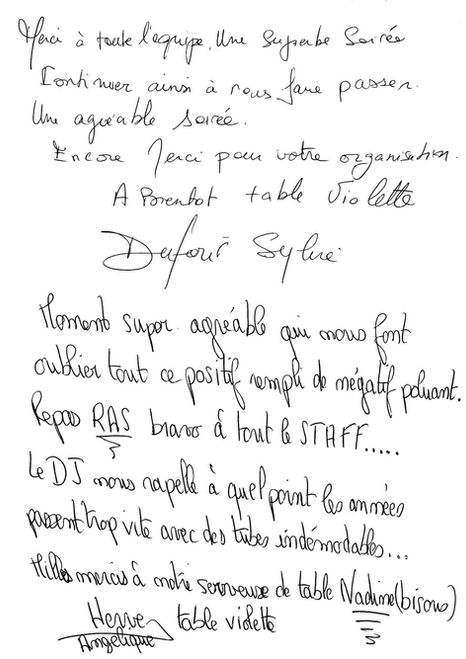 Merci à toute l'equipe. Une Superbe Soirée
Continuer ainsi à nous faire passer.
Une agréable soirée.
Encore Merci pour votre organisation.
A Bientot table Violette
Dufour Sylvie
Moment super agréable qui nous font
oublier tout ce positif rempli de négatif poluant.
Repas RAS bravo à tout le STAFF.....
Le DJ nous rapelle à quel point les années
passent trop vite avec des tubes indémodables...
Milles mercis à notre serveuse de table Nadine (bisous)
Herve table violette
Angelique